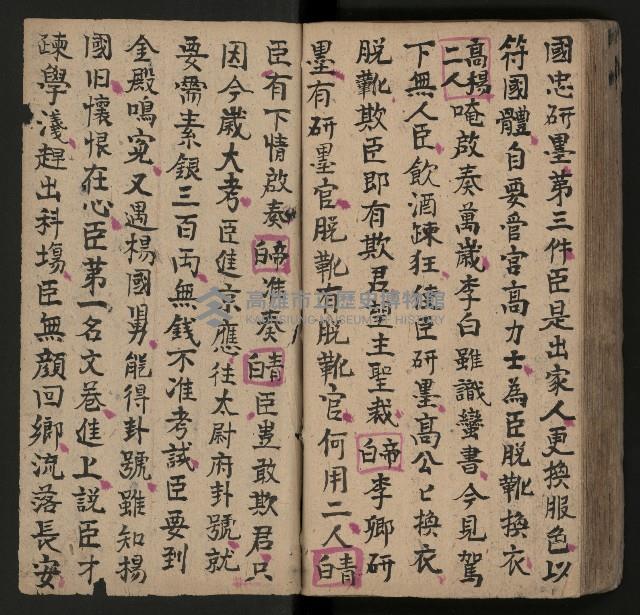 國忠研墨第三件臣是出家人更換服色以
符國體自要管官高力士為臣脫靴換衣
高揚二人唵啟奏萬歲李白雖識蠻書今見駕
下無人臣飲酒踈狂使臣研墨高公公換衣
脫靴欺臣即有欺君望主聖裁帝白李卿研
墨有研墨官脫靴有脫靴官何用二人青白
臣有下情啟奏帝白准奏青白臣豈敢欺君只
因今歲大考臣進京應往太尉府卦號就
要需素銀三百両無錢不准考試臣要到
金殿鳴寃又遇楊國舅能得卦號雖知揚
國旧懷恨在心臣第一名文卷進上說臣才
踈學淺趕出科塲臣無顔回鄉流落長安
高雄市立歷史博物館
KAOHSIUNG MUSEUM OF HISTORY